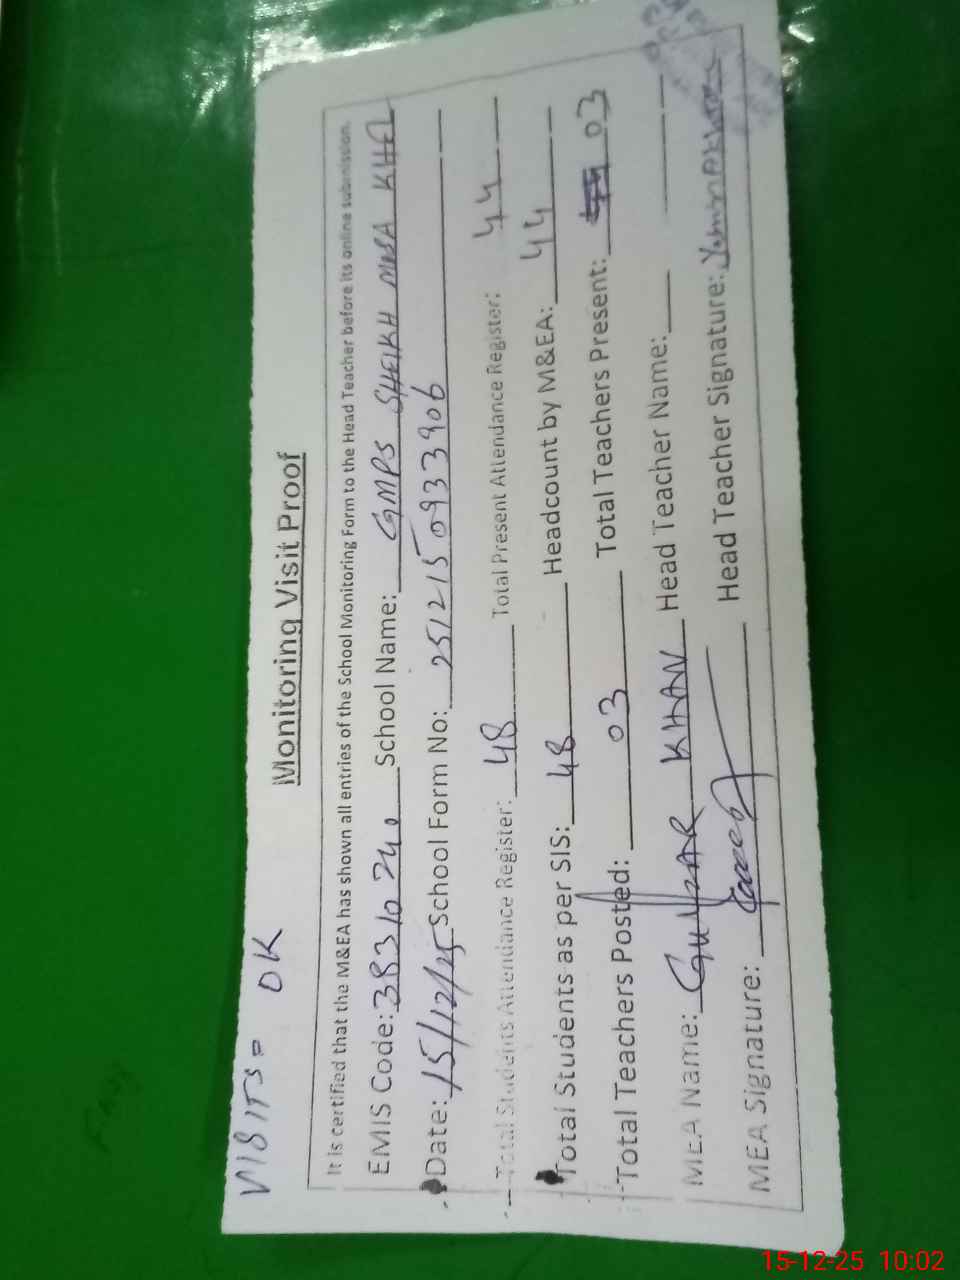 VISITS = OK
Monitoring Visit Proof
It is certified that the M&EA has shown all entries of the School Monitoring Form to the Head Teacher before its online submission.
EMIS Code: 38310240 School Name: GMPS SHEIKH MUSA KHEL
Date: 15/12/25 School Form No: 251215 0933906
Total Students Attendance Register: 48 Total Present Attendance Register: 44
Total Students as per SIS: 48 Headcount by M&EA: 44
Total Teachers Posted: 03 Total Teachers Present: 03
MEA Name: GULZAR KHAN Head Teacher Name:
MEA Signature: Head Teacher Signature:
15-12-25 10:02